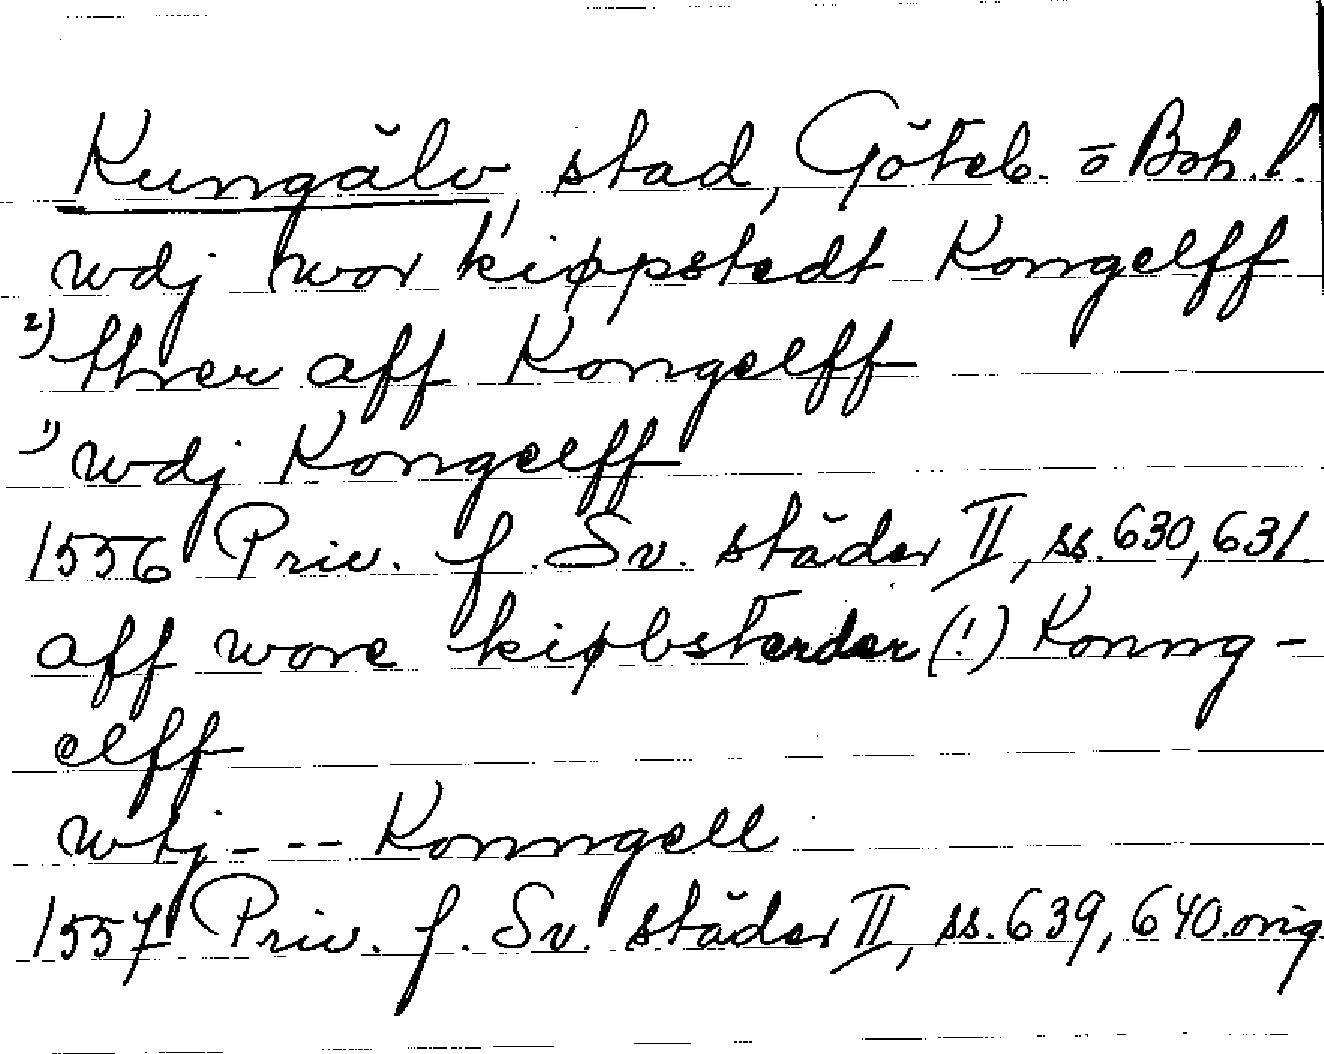 Kungälv, stad, Göteb. o Boh. l.
wdj wor kiøpstedt 1) Kongelff
2) threr aff Kongelff
1) wdj Kongelff
1556 Priv. f. Sv. städer II, ss. 630, 631
aff wore kiøbsterder (!) Konng-
elff
wtj --- Konngell
1557 Priv. f. Sv. städer II, ss. 639, 640. orig